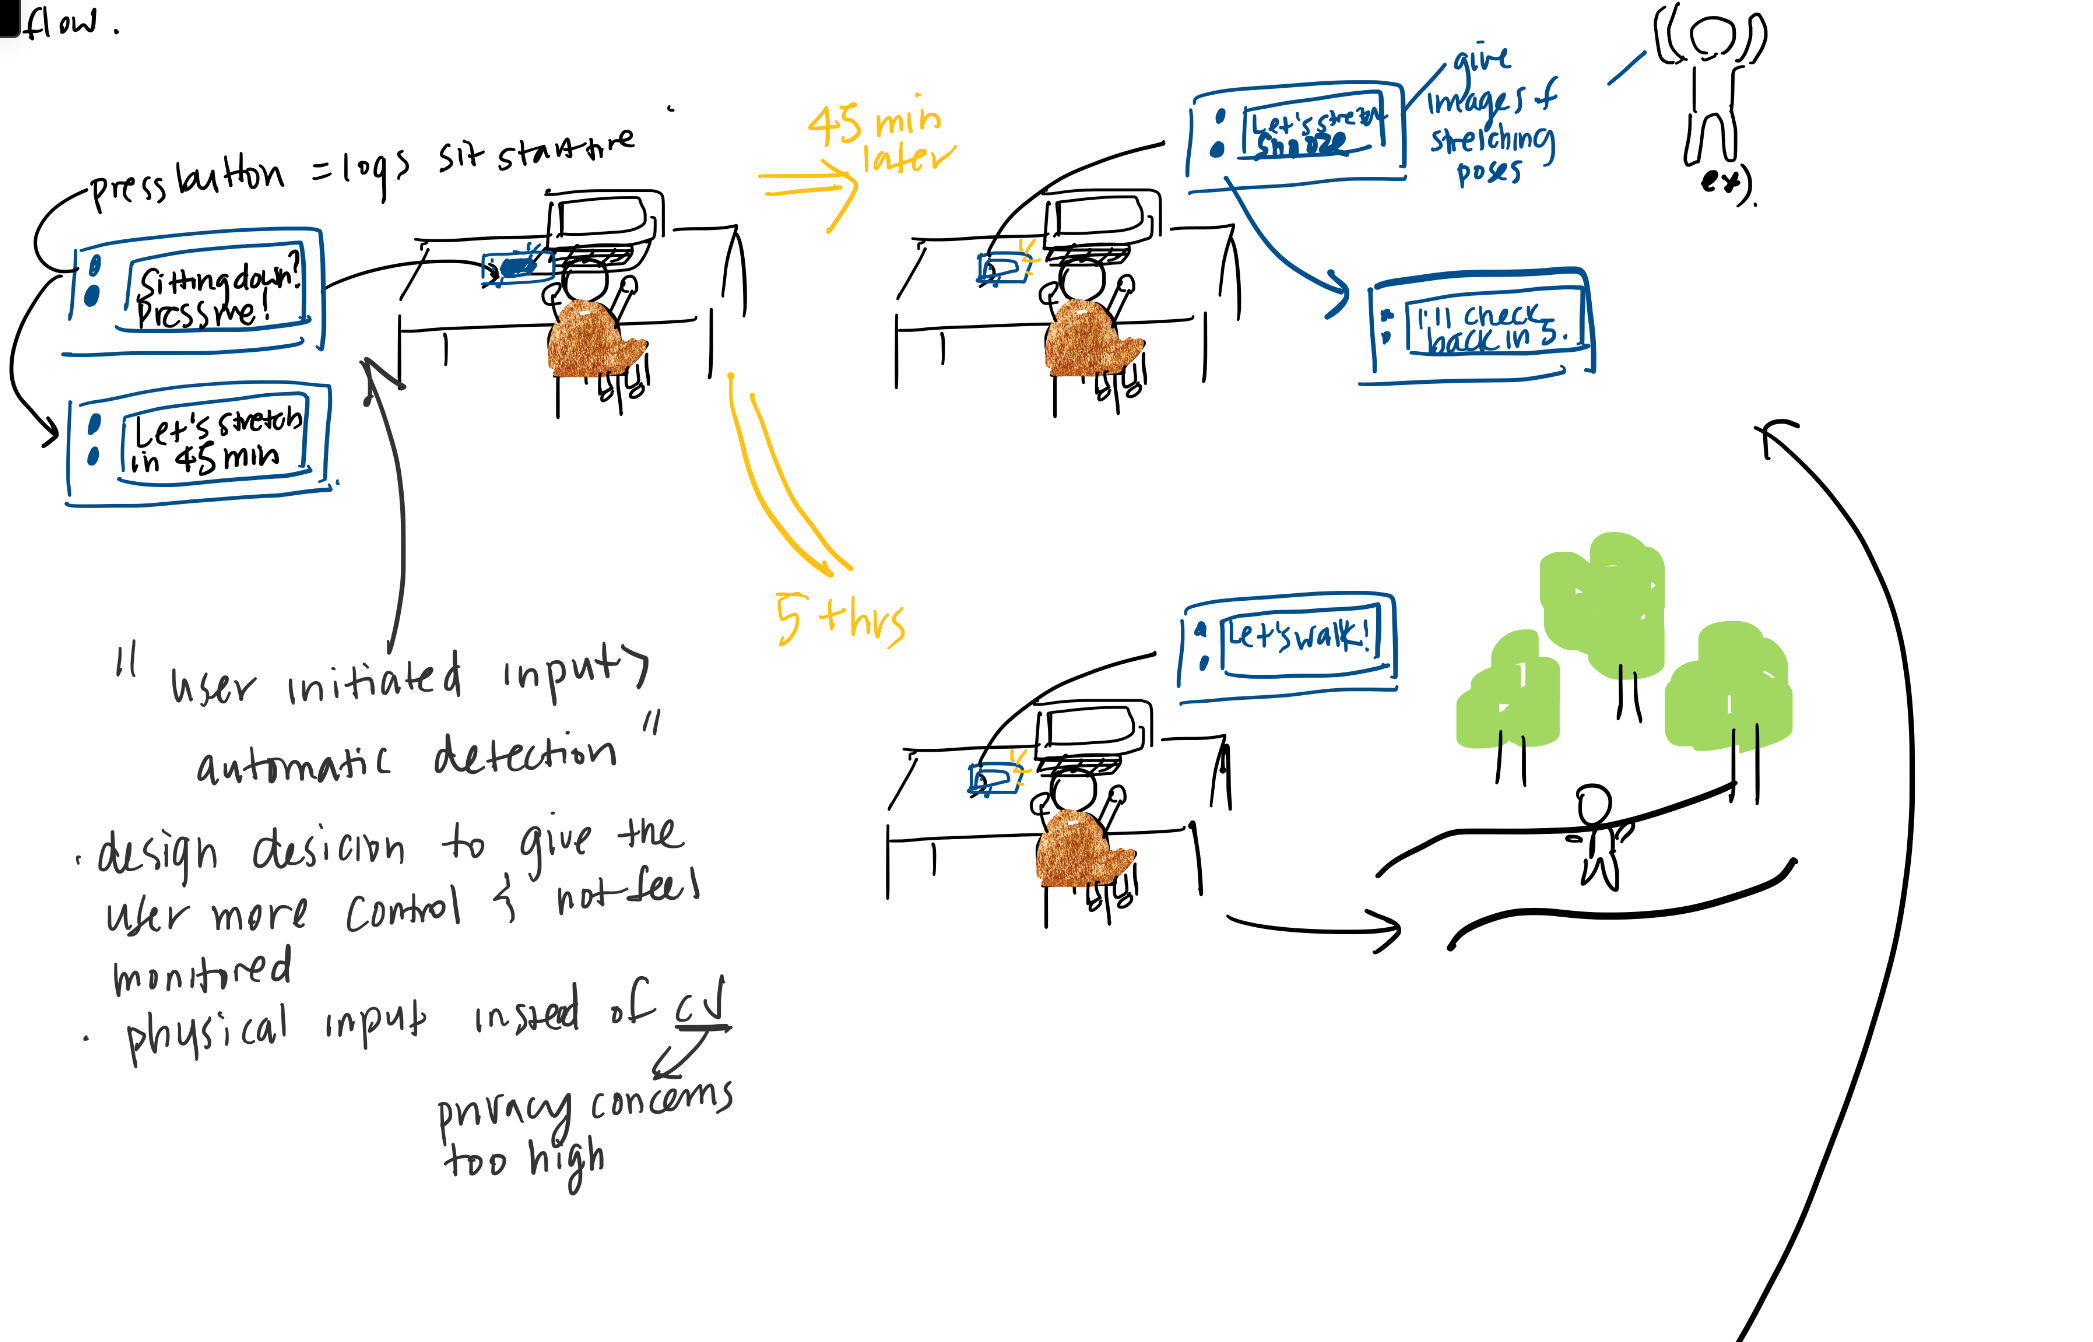 flow.
press button = logs sit start time
Sitting down?
Press me!
Let's stretch
in 45 min
45 min
later
Let's stretch
Snooze
give
images of
stretching
poses
ex).
I'll check
back in 5.
5+hrs
Let's walk!
"user initiated input >
automatic detection"
· design desicion to give the
user more control & not feel
monitored
· physical input instead of CV
privacy concerns
too high